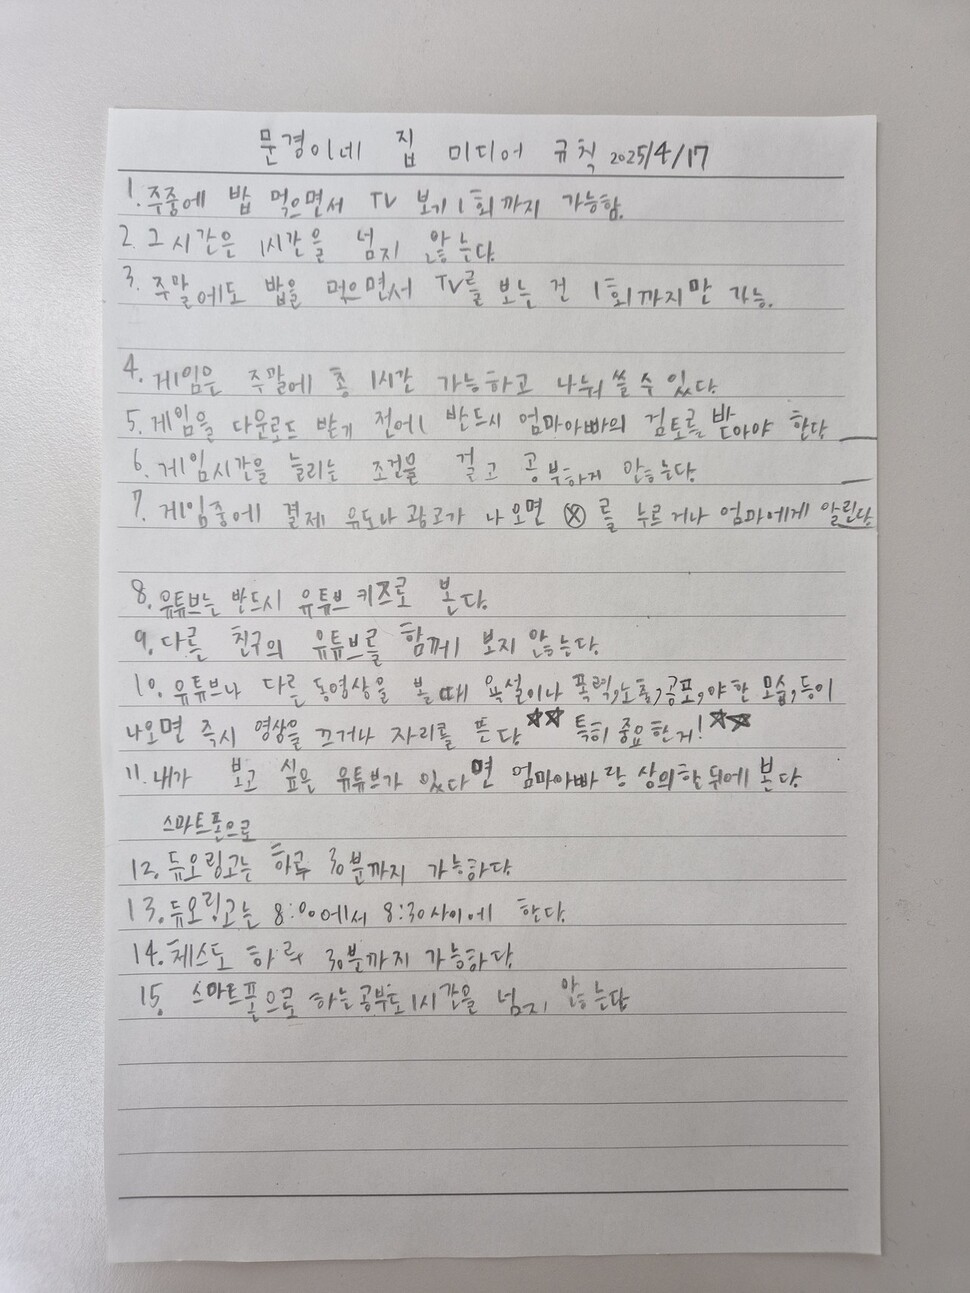 문경이네 집 미디어 규칙 2025/4/17
1. 주중에 밥 먹으면서 TV 보기 1회까지 가능함.
2. 그 시간은 1시간을 넘지 않는다.
3. 주말에도 밥을 먹으면서 TV를 보는 건 1회까지만 가능.
4. 게임은 주말에 총 1시간 가능하고 나눠 쓸 수 있다.
5. 게임을 다운로드 받기 전에 반드시 엄마아빠의 검토를 받아야 한다
6. 게임시간을 늘리는 조건을 걸고 공부하지 않는다.
7. 게임중에 결제 유도나 광고가 나오면 ⓧ를 누르거나 엄마에게 알린다
8. 유튜브는 반드시 유튜브 키즈로 본다.
9. 다른 친구의 유튜브를 함께 보지 않는다.
10. 유튜브나 다른 동영상을 볼 때 욕설이나 폭력, 노출, 공포, 야한 모습, 등이
나오면 즉시 영상을 끄거나 자리를 뜬다 ☆☆ 특히 중요한거! ☆☆
11. 내가 보고 싶은 유튜브가 있다면 엄마아빠랑 상의한 뒤에 본다.
스마트폰으로
12. 듀오링고는 하루 30분까지 가능하다.
13. 듀오링고는 8:00에서 8:30사이에 한다.
14. 체스도 하루 30분까지 가능하다.
15. 스마트폰으로 하는 공부도 1시간을 넘지 않는다